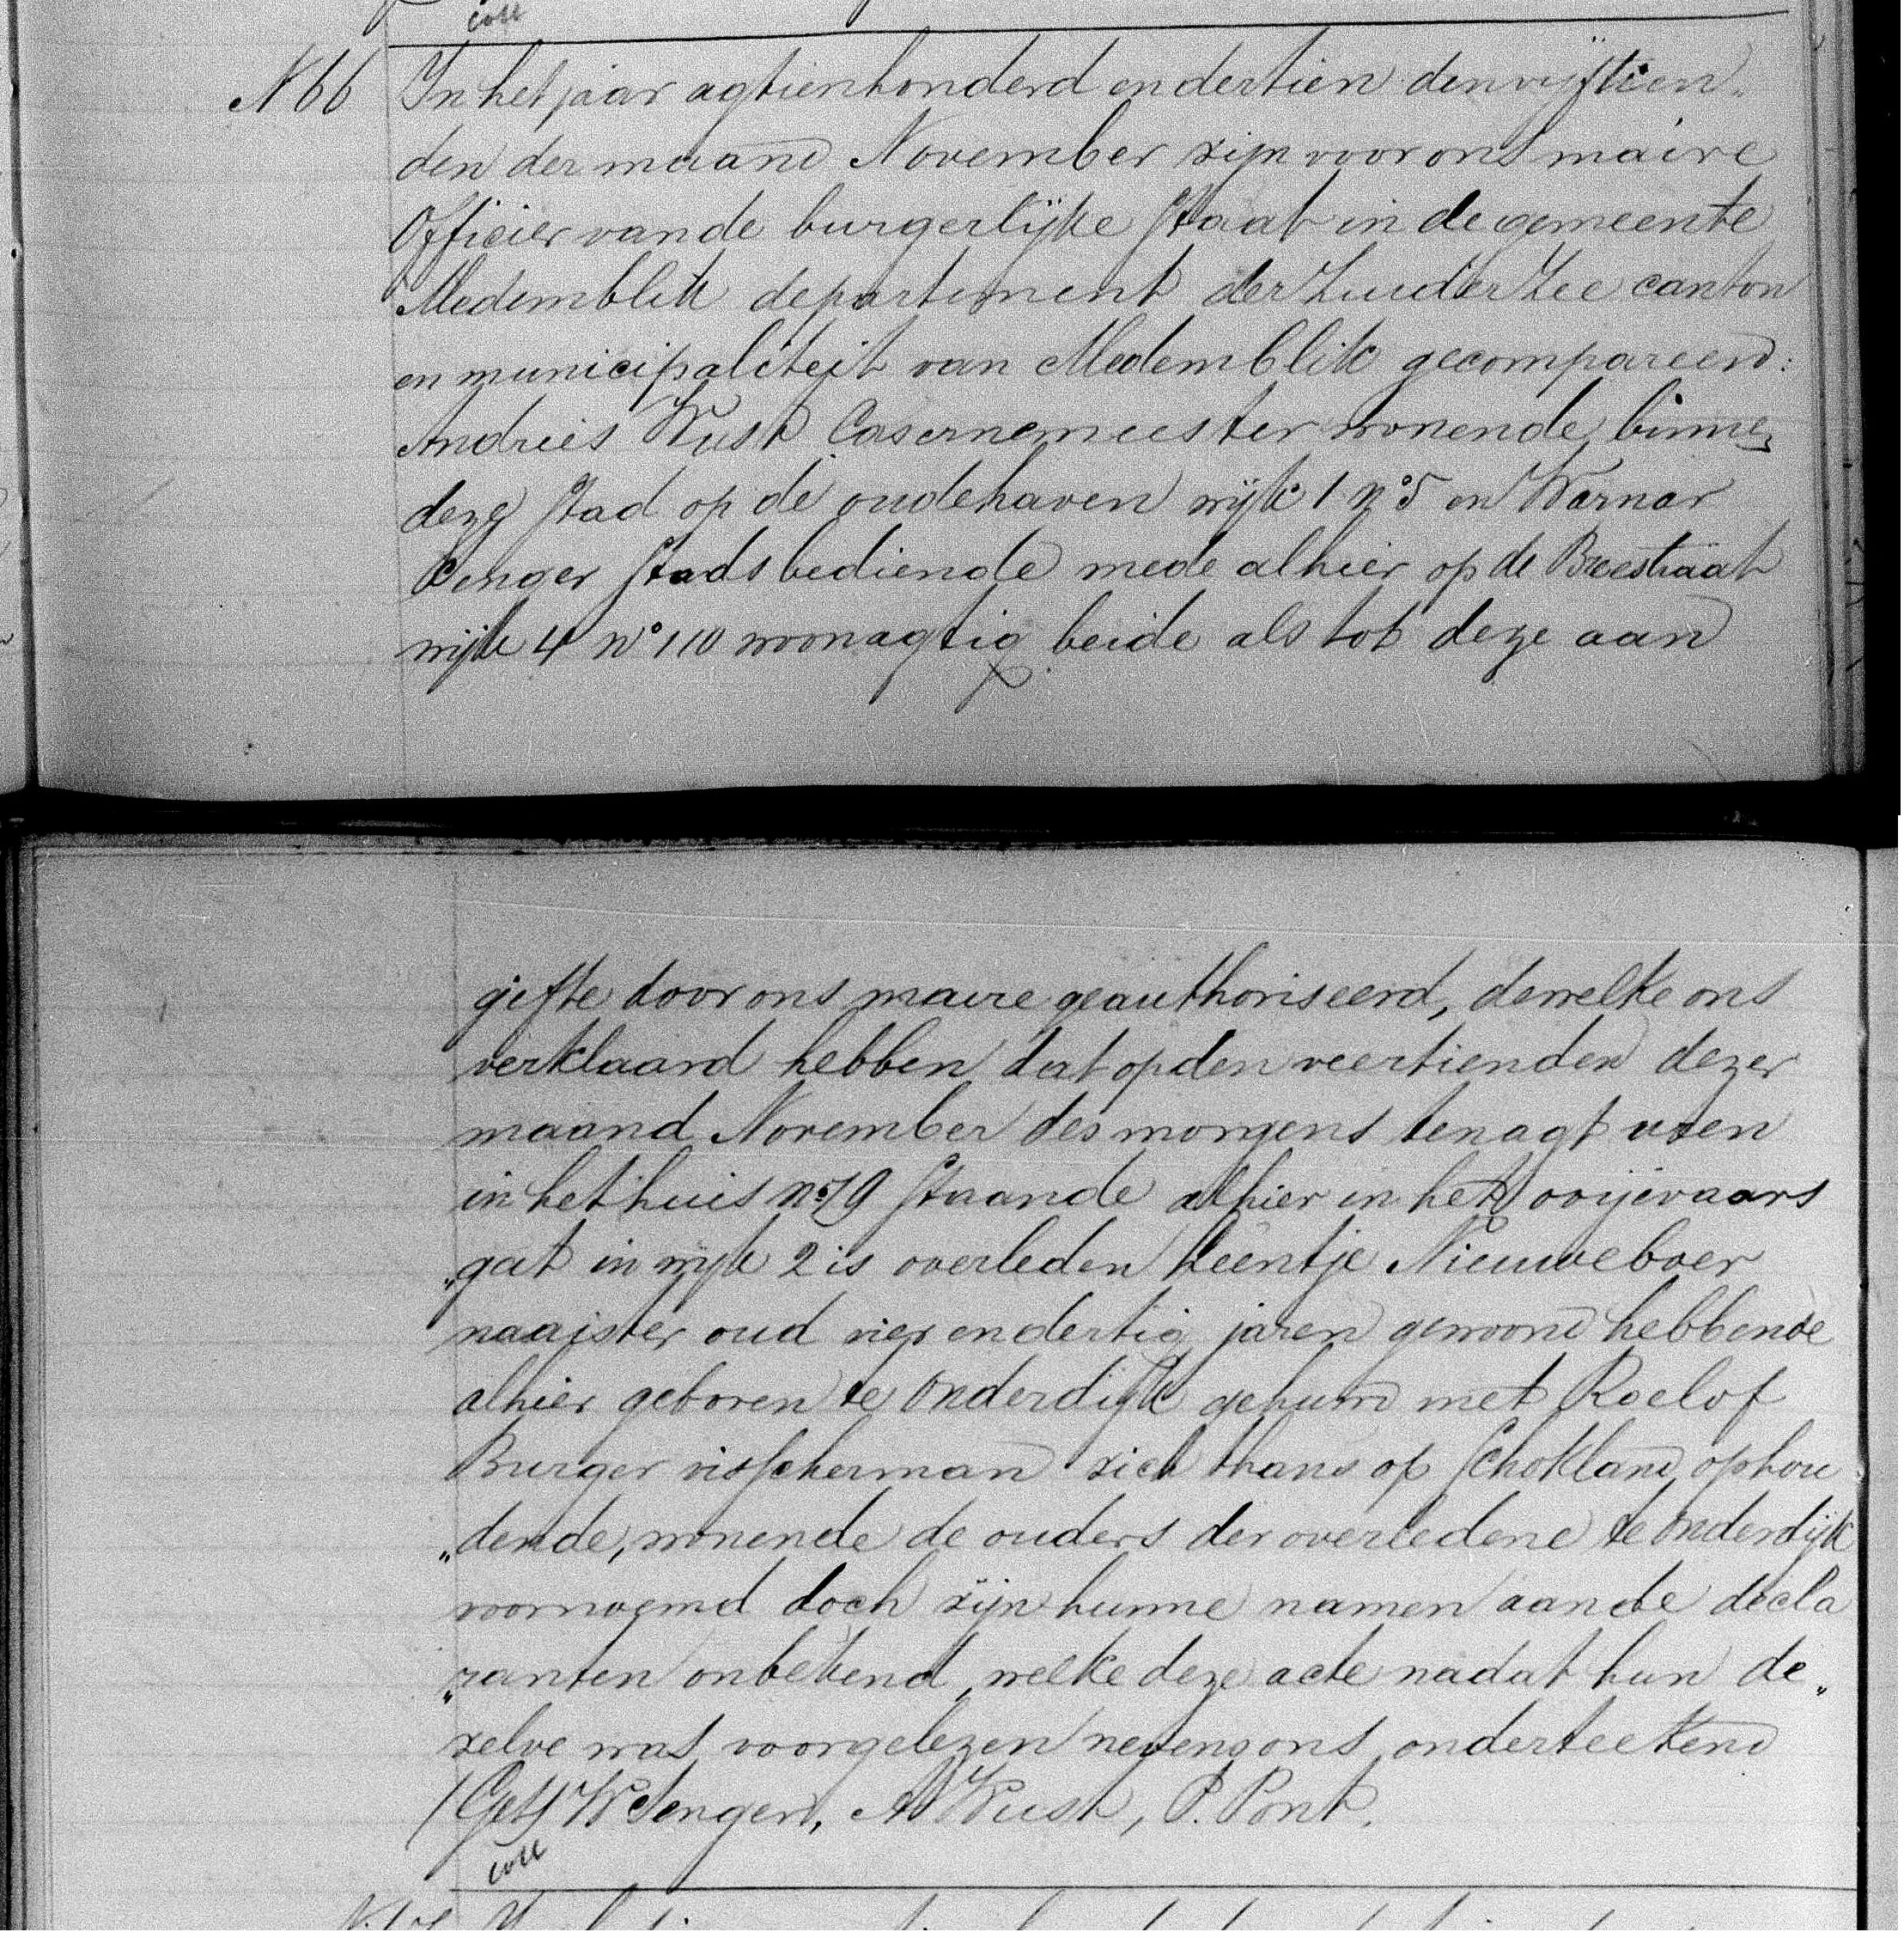 coll
N 66 In het jaar agtienhonderd en dertien den vijftien„
den der maand November zijn voor ons maire
Officier van de burgerlijke Staat in de gemeente
Medemblik departement der Zuider Zee canton
en municipaliteit van Medemblik gecompareerd:
Andries Wust Casernemeester wonende binnen
deze stad op de oudehaven wijk 1 no 5 en Warnar
Cenger Stadsbediende mede alhier op de Breestraat
wijk 4 no 110 woonagtig beide als tot deze aan
gifte door ons maire geauthoriseerd, dewelke ons
verklaard hebben dat op den veertienden dezer
maand November des morgens ten agt uren
in het huis no 79 staande alhier in het ooijevaars
„gat in wijk 2 is overleden Leentje Nieuweboer
naaister oud vier en dertig jaren gewoond hebbende
alhier geboren te Onderdijk gehuwd met Roelof
Burger visscherman zich thans op Schokland ophou
„dende, wonende de ouders der overledene te Onderdijk
voornoemd doch zijn hunne namen aan de decla
„ranten onbekend, welke deze acte nadat hun de„
zelve was voorgelezen nevens ons onderteekend
(Get) W Cenger, A Wust, P. Pont.
coll